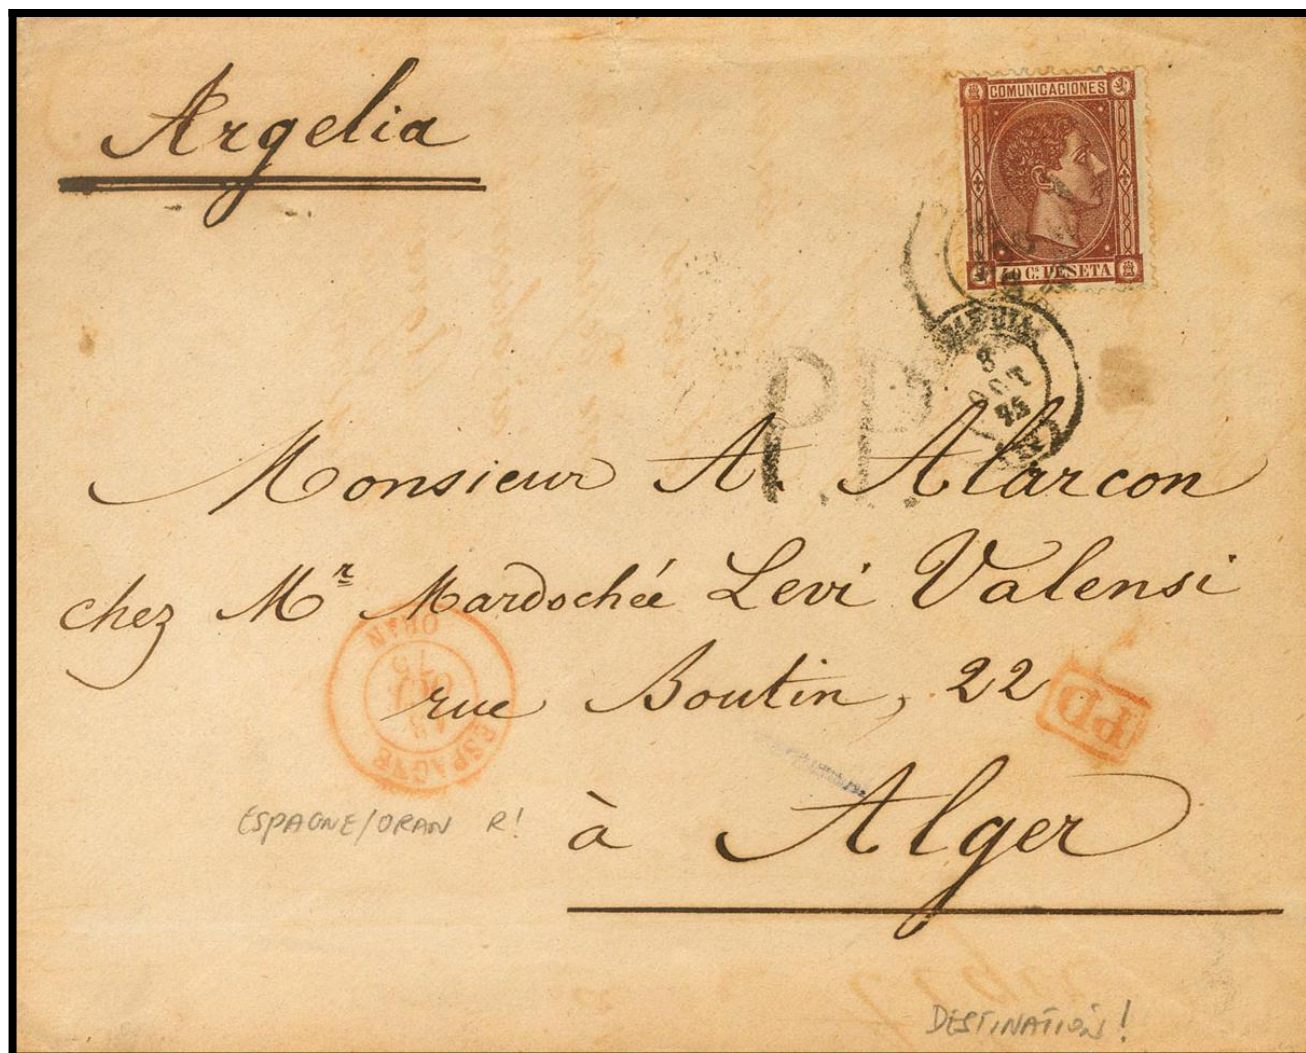 Argelia
COMUNICACIONES
40 Cs PESETA
8
OCT
75
P.P.
Monsieur A. Alarcon
chez Mr Mardochée Levi Valensi
rue Boutin, 22
PD
ORAN
75
OCT
ESPAGNE
ESPAGNE/ORAN R!
à Alger
DESTINATION!